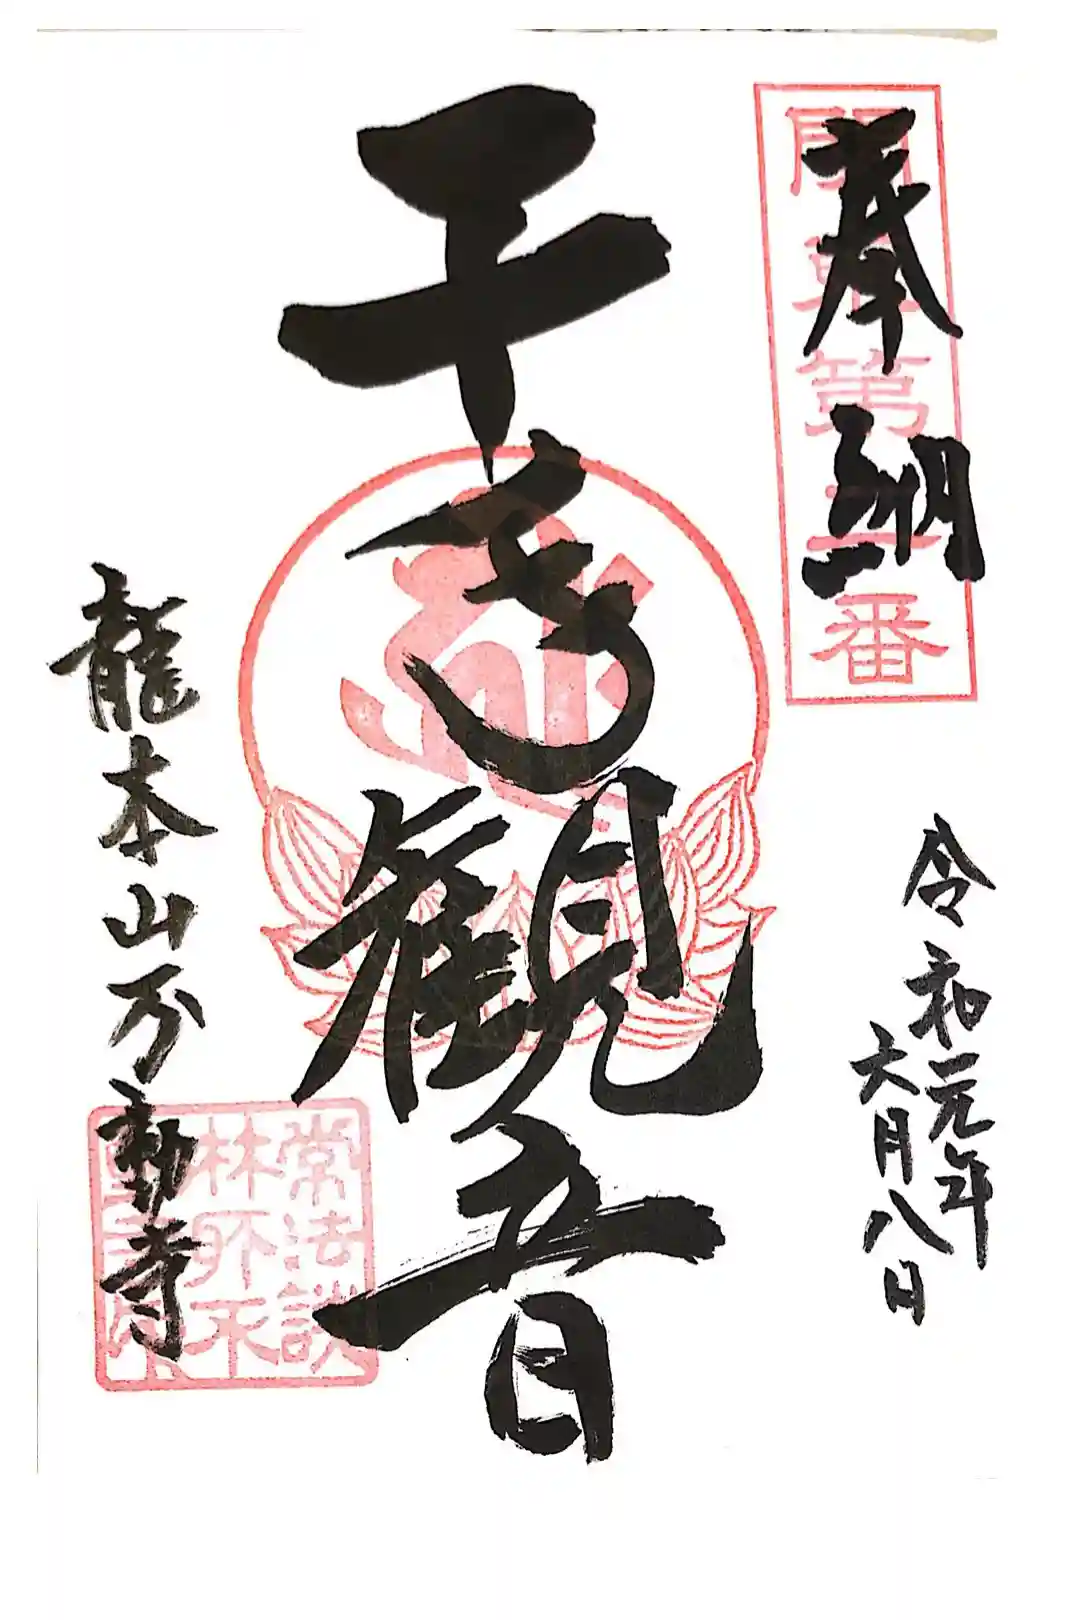 奉納
関東第二番
令和元年
六月八日
千手観音
龍本山不動寺
常法談
林所不